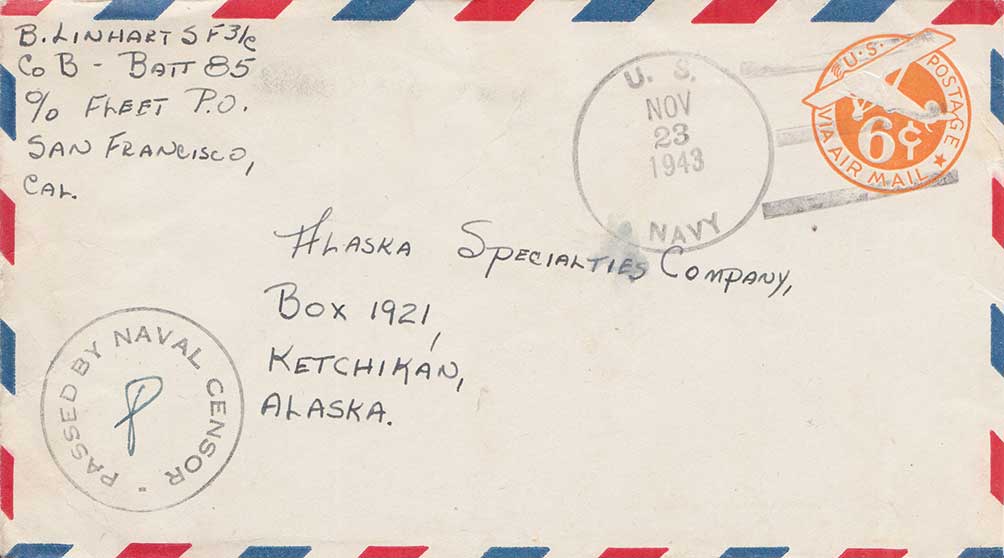 B. LINHART SF 3/c
Co B - BATT 85
c/o FLEET P.O.
SAN FRANCISCO,
CAL.
U. S.
NOV
23
1943
NAVY
U.S. POSTAGE
6¢
VIA AIR MAIL
ALASKA SPECIALTIES COMPANY,
BOX 1921,
KETCHIKAN,
ALASKA.
PASSED BY NAVAL CENSOR
P